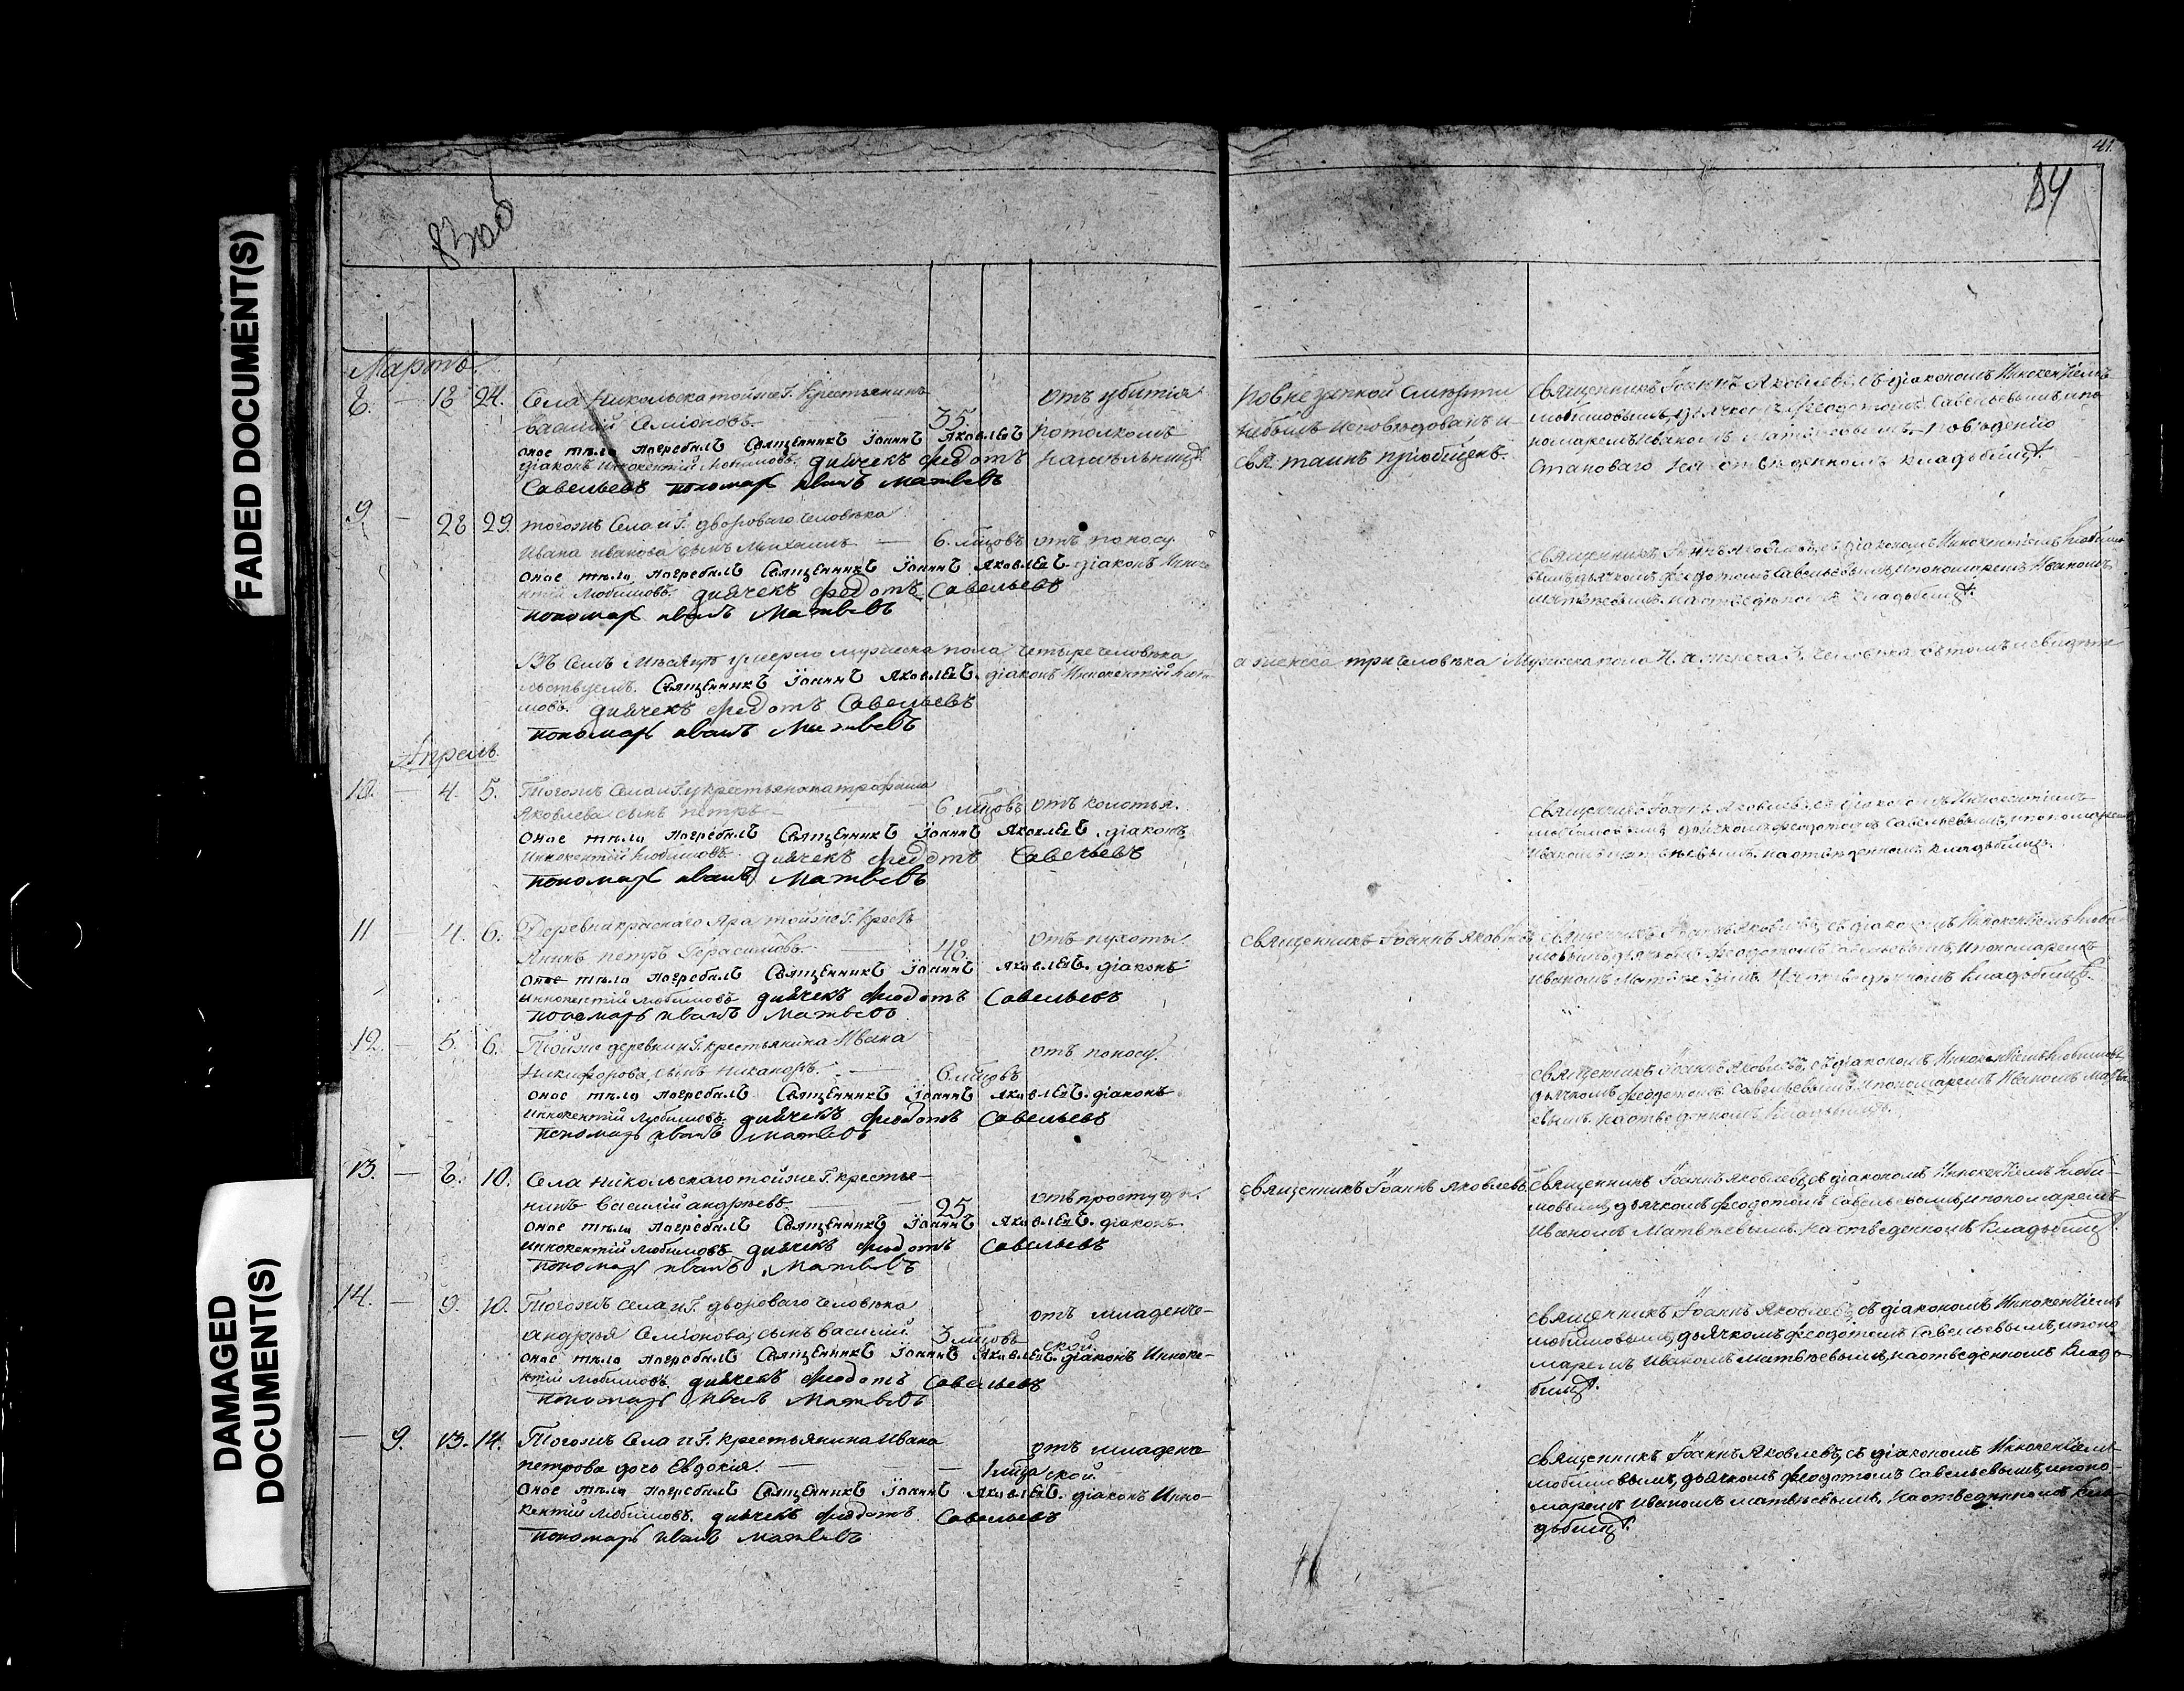 FADED DOCUMENT(S)
DAMAGED
DOCUMENT(S)
41.
84
Мартъ.
8. — 18 24. Села Никольска тойже Г. Крестьянинъ
василий Семіоновъ. 35. отъ убитія
потолкомъ
оное тѣло погребалъ Священникъ Іоаннъ Яковлевъ
діаконъ Иннокентій Любимовъ. дьячекъ федотъ
Савельевъ пономарь иванъ матвевъ
По внезапной смерти
небылъ исповѣдованъ и
свя. таинъ пріобщенъ.
Священникъ Іоаннъ Яковлевъ, съ діакономъ Иннокентіемъ
любимовымъ, дьячкомъ феодотомъ Савельевымъ и по
номаремъ Иваномъ матвѣевымъ.
Становаго на отведенномъ кладьбищѣ.
9. — 28 29. тогожъ Села и Г. двороваго человѣка
Ивана иванова сынъ Михаилъ — 6. мцовъ отъ поносу.
оное тѣло погребалъ Священникъ Іоаннъ Яковлевъ. діаконъ Инноке
нтій Любимовъ. дьячекъ федотъ Савельевъ
пономарь иванъ Матвевъ
Священникъ Іоаннъ Яковлевъ, съ діакономъ Иннокентіемъ Любимо
вымъ дьячкомъ феодотомъ Савельевымъ, и пономаремъ Иваномъ
матвѣевымъ. на отведенномъ кладьбищѣ.
Въ Семъ Мѣсяцѣ умерло мужеска пола четыре человѣка
а женска три человѣка Мужеска пола
льствуемъ. Священникъ Іоаннъ Яковлевъ. діаконъ Иннокентій Люби
мовъ. дьячекъ федотъ Савельевъ
пономарь иванъ Матвевъ
Апрель.
10. — 4. 5. Тогожъ Села и Г. у крестьянина трофима
Яковлева сынъ петръ — 6 мцовъ отъ колотья.
оное тѣло погребалъ Священникъ Іоаннъ Яковлевъ. діаконъ
Иннокентій Любимовъ. дьячекъ федотъ Савельевъ
пономарь иванъ Матвевъ
Священникъ Іоаннъ Яковлевъ, съ діакономъ Иннокентіемъ
любимовымъ дьячкомъ феодотомъ Савельевымъ, и пономаремъ
Иваномъ матвѣевымъ. на отведенномъ кладьбищѣ.
11 — 4. 6. Деревни краснаго Яра тойже Г. Кресть
янинъ петръ Герасимовъ. — 48. отъ пухоты.
оное тѣло погребалъ Священникъ Іоаннъ Яковлевъ. діаконъ
Иннокентій Любимовъ дьячекъ федотъ Савельевъ
пономарь иванъ Матвевъ
Священникъ Іоаннъ Яковлевъ
Священникъ Іоаннъ Яковлевъ, съ діакономъ Иннокентіемъ Люби
мовымъ, дьячкомъ феодотомъ Савельевымъ, и пономаремъ
Иваномъ Матвѣевымъ. На отведенномъ кладьбищѣ.
12. — 5. 6. Тойже деревни и Г. крестьянина Ивана
Никифорова, сынъ Никаноръ. — 6 мцовъ отъ поносу.
оное тѣло погребалъ Священникъ Іоаннъ Яковлевъ. діаконъ
Иннокентій Любимовъ. дьячекъ федотъ Савельевъ
пономарь иванъ матвевъ
Священникъ Іоаннъ Яковлевъ, съ діакономъ Иннокентіемъ Любимовы
дьячкомъ феодотомъ Савельевымъ, и пономаремъ Иваномъ Матвѣ
евымъ. на отведенномъ кладьбищѣ.
13. — 8. 10. Села Никольскаго тойже Г. крестья-
нинъ василій андреевъ. — 25. отъ простуды.
оное тѣло погребалъ Священникъ Іоаннъ Яковлевъ. діаконъ
Иннокентій Любимовъ дьячекъ федотъ Савельевъ
пономарь иванъ Матвевъ
Священникъ Іоаннъ Яковлевъ.
Священникъ Іоаннъ Яковлевъ, съ діакономъ Иннокентіемъ Люби-
мовымъ, дьячкомъ феодотомъ Савельевымъ, и пономаремъ
Иваномъ Матвѣевымъ. на отведенномъ кладьбищѣ.
14. — 9. 10. Тогожъ села и Г. двороваго человѣка
андрея Семіонова, сынъ василій. 3 мцовъ отъ младенче-
ской.
оное тѣло погребалъ Священникъ Іоаннъ Яковлевъ. діаконъ Инноке-
нтій Любимовъ. дьячекъ федотъ Савельевъ
пономарь иванъ Матвевъ
Священникъ Іоаннъ Яковлевъ, съ діакономъ Иннокентіемъ
любимовымъ, дьячкомъ феодотомъ Савельевымъ, и поно
маремъ Иваномъ матвѣевымъ, на отведенномъ кладь
бищѣ.
— 9. 13. 14. Тогожъ Села и Г. крестьянина Ивана
петрова дочь Евдокія. — 1 мца отъ младенче
ской.
оное тѣло погребалъ Священникъ Іоаннъ Яковлевъ. діаконъ Инно-
кентій Любимовъ. дьячекъ федотъ Савельевъ
пономарь иванъ матвевъ
Священникъ Іоаннъ Яковлевъ, съ діакономъ Иннокентіемъ
любимовымъ, дьячкомъ феодотомъ Савельевымъ, и поно-
маремъ Иваномъ матвѣевымъ, на отведенномъ кла-
дьбищѣ.